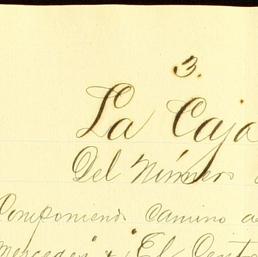 3.
La Caja
Del Número
Componiendo Camino de
Mercedes" & "El Centr